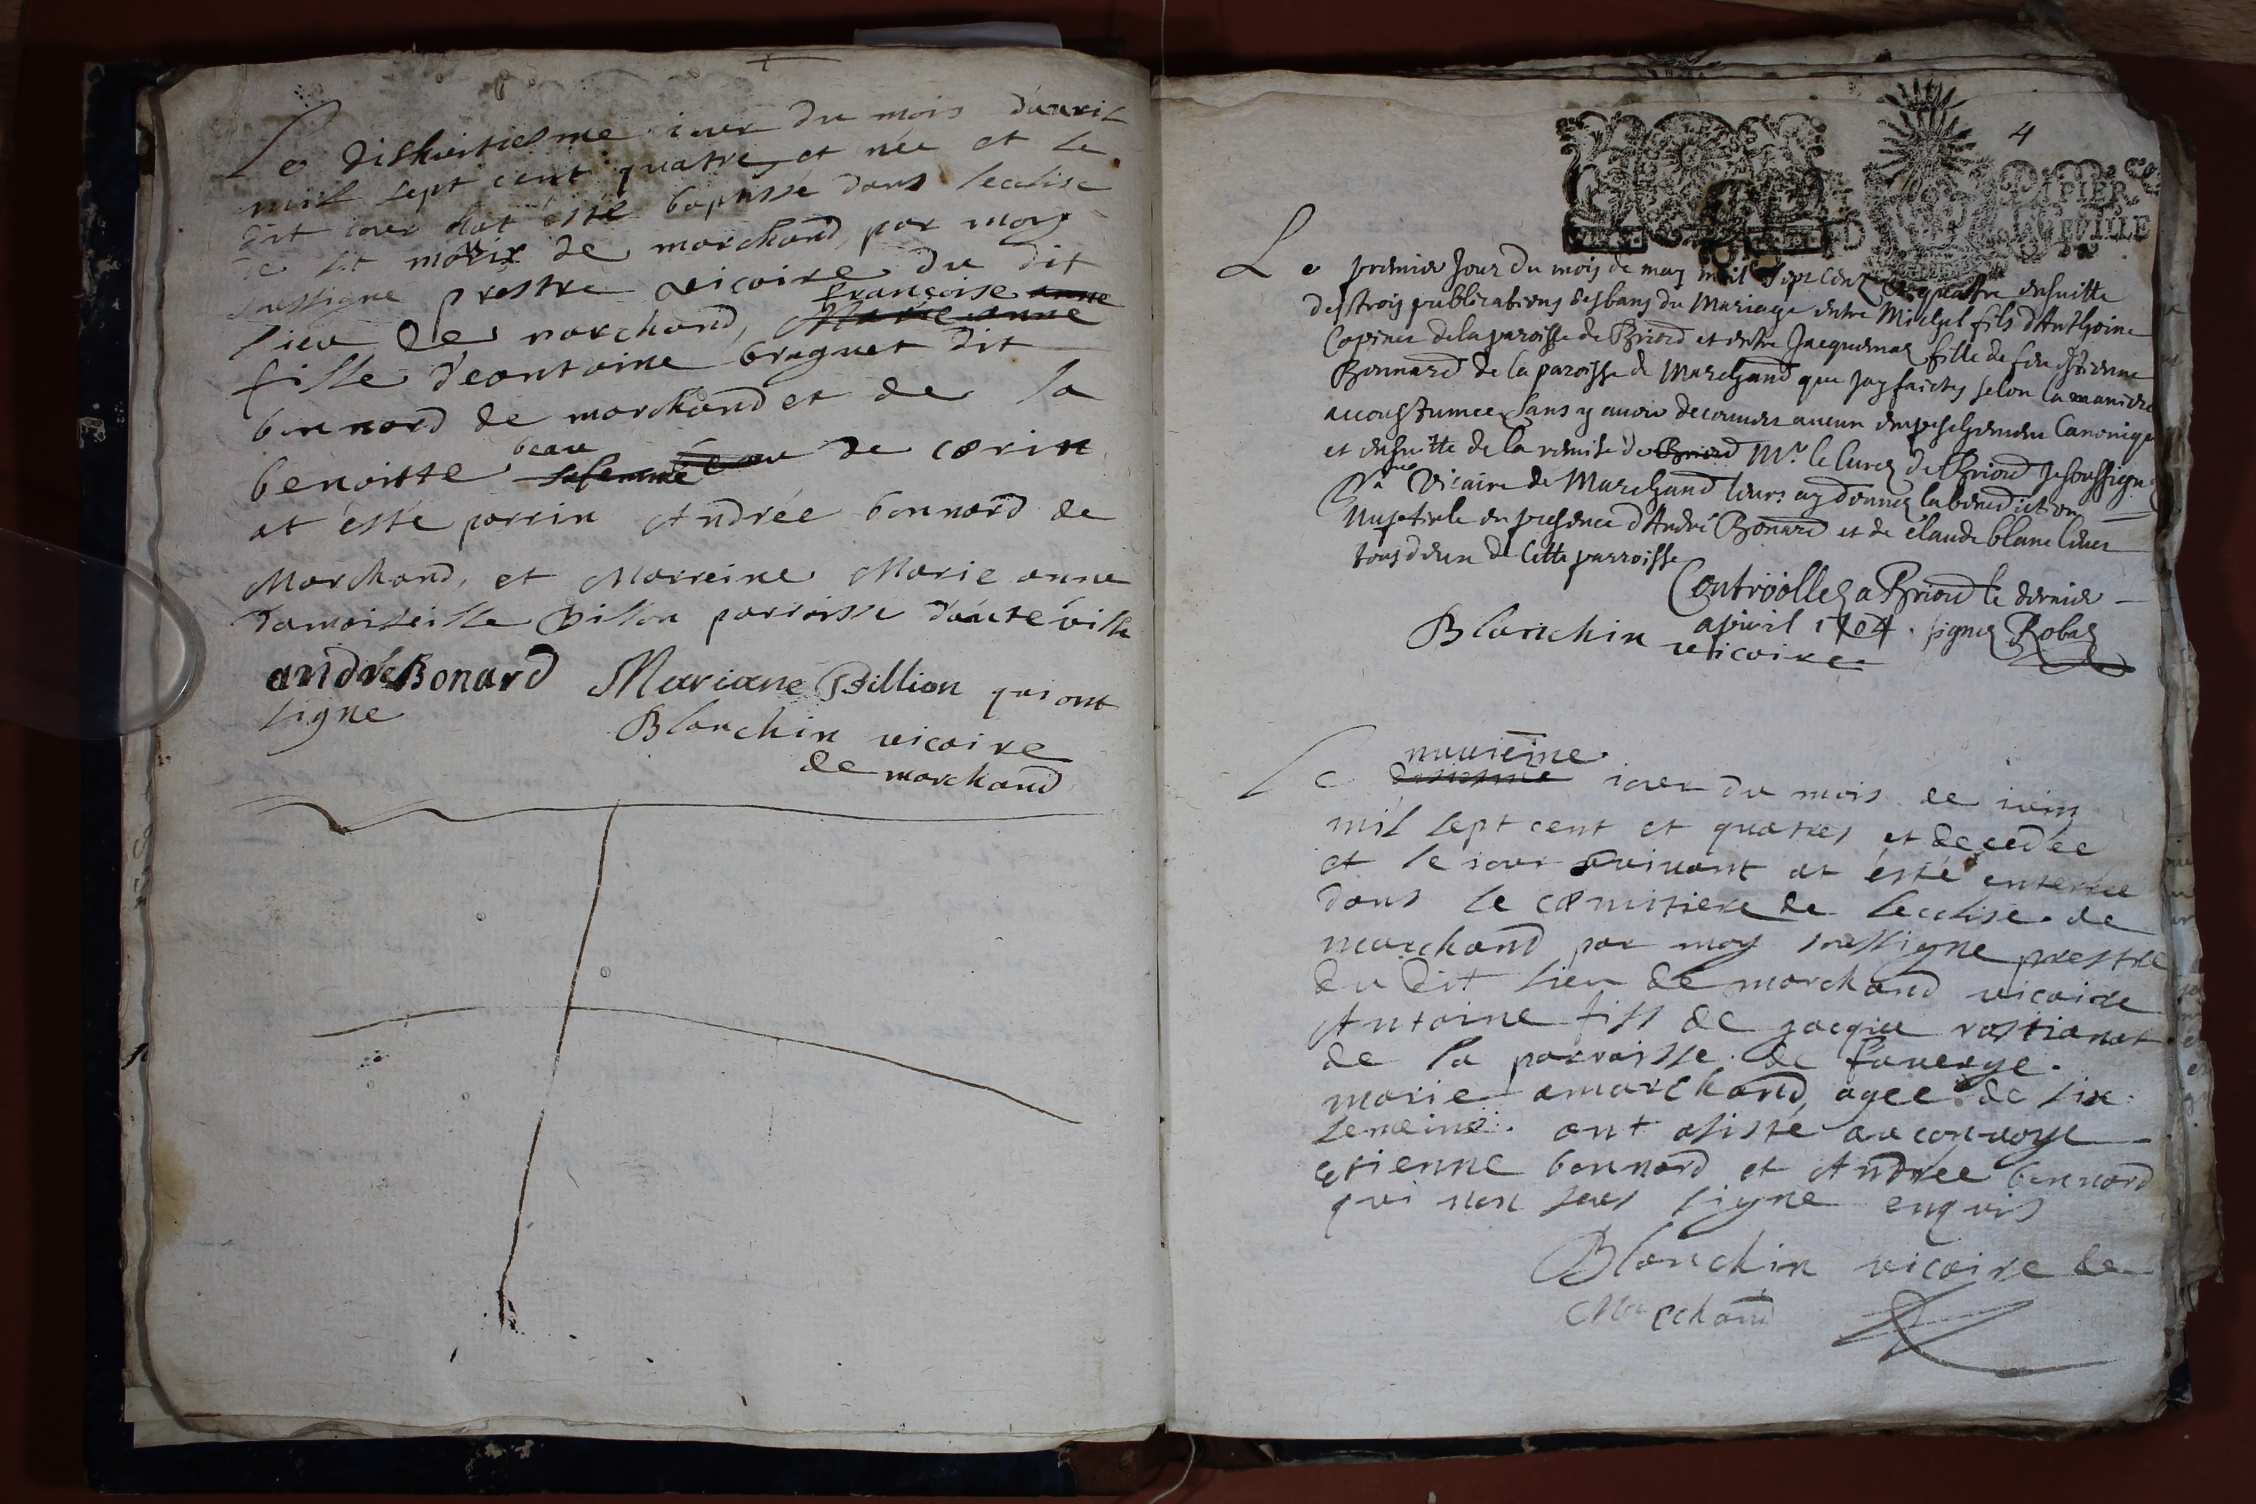 Le dishuitiesme iour du mois d'auril
mil sept cent quatre et née et le
dit iour at esté baptissé dans leclise
de st morix de marchand par moy
soussigne prestre vicaire du dit
lieu de marchand, françoise anne
Marie anne
fille d'eantoine braguet dit
bonnard de marchand et de la
benoitte beau de cerin
at ésté parrin Andrée bonnard de
Marchand, et Marreine Marie anne
damoiselle Billon parroisse d'auteville
andré Bonard Mariane Billion qui ont
signe
Blanchin vicaire
de marchand
4
PAPIER
Le premier Jour du mois de may mil sept cent et quatre ensuitte
des trois publications des bans du Mariage entre Michel fils d'Anthoine
de la paroisse de Briord et entre Jacquemaz fille de feu Etienne
Bonnard de la paroisse de Marchand que jay faictes selon la maniere
accoustumee sans y auoir decouuert aucun empeschement Canonique
et ensuitte de la remise de Briord Mr. le Curez de Briord Je soussigne
Vicaire de Marchand leurs ay donnez la benediction
Nuptiale en presence d'André Bonard et de Claude blanc
tous deux de Cette parroisse
Controollez a Briord le dernier
apuril 1704. signez Robaz
Blanchin vicaire
Le nuuieme
iour du mois de iuin
mil sept cent et quatres et decedée
et le iour suiuant at ésté enterrée
dans le cemitiere de leclise de
marchand par moy soussigne prestre
du dit lieu de marchand vicaire
Antoine fils de jacque
de la parroisse de fauerge.
marie amarchand, agee de six
semeine. ont asisté au conuoye
etienne bonnard et Andrée bonnard
qui non seus signe enquis
Blanchin vicaire de
Marchand